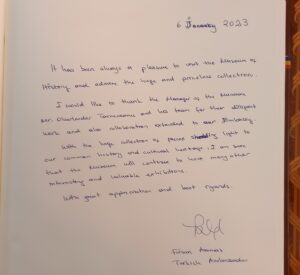 6 January 2023
It has been always a pleasure to visit the Museum of
History and admire the huge and priceless collection.
I would like to thank the Manager of the Museum
Mr. Oberlander Tarnoveanu and his team for their diligent
work and also collaboration extended to our Embassy
With the huge collection of pieces shedding light to
our common history and cultural heritage, I am sure
that the Museum will continue to have many other
interesting and valuable exhibitions.
With great appreciation and best regards.
Füsun Aramaz
Turkish Ambassador